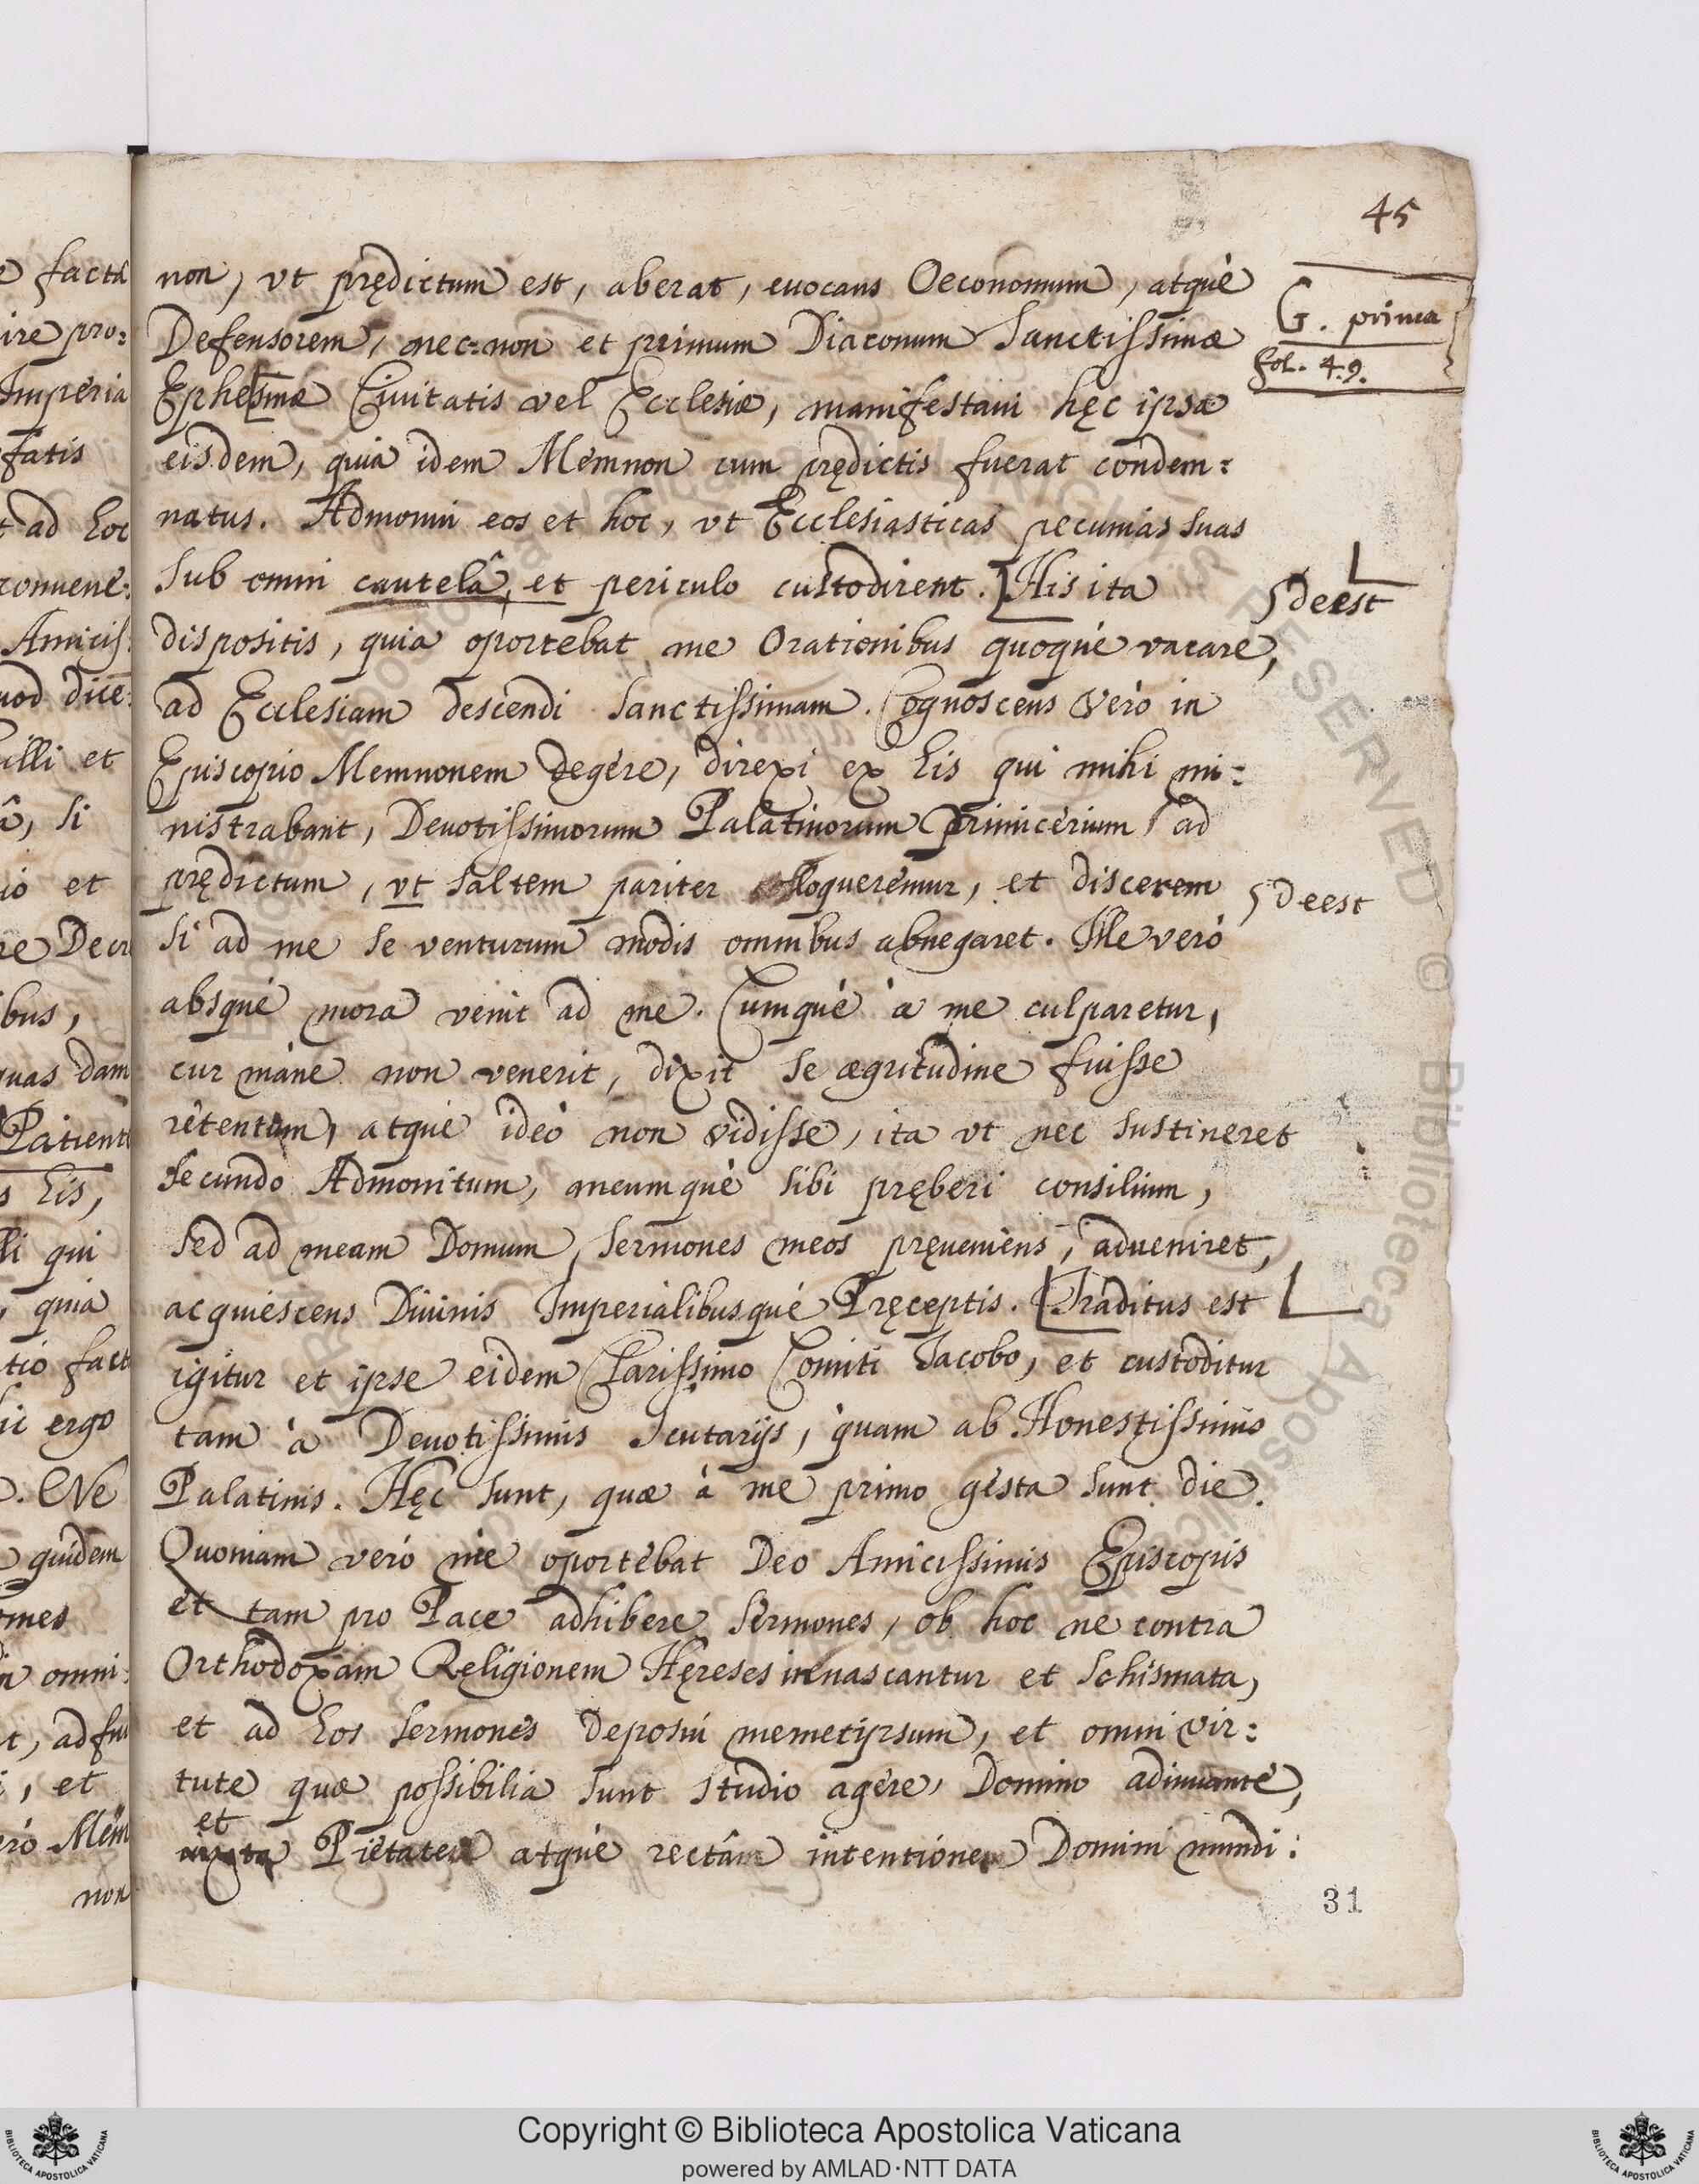 45
non, vt prędictum est, aberat, euocans Oeconomum, atquè
G. prima
Defensorem, nec=non et primum Diaconum Sanctissimæ
fol. 49.
Ephesinæ Ciuitatis vel Ecclesiæ, manifestaui hęc ipsa
eisdem, quia idem Memnon cum prędictis fuerat condem=
natus. Admonui eos et hoc, vt Ecclesiasticas pecunias suas
sub omni cautelâ, et periculo custodirent. [His ita
deest
dispositis, quia oportebat me Orationibus quoquè vacare,
ad Ecclesiam descendi Sanctissimam. Cognoscens verò in
Episcopio Memnonem degere, direxi ex his qui mihi mi=
nistrabant, Deuotissimorum Palatinorum Primicerium ad
prędictum, vt saltem pariter colloqueremur, et discerem
deest
si ad me se venturum modis omnibus abnegaret. Ille verò
absquè mora venit ad me. Cumquè à me culparetur,
cur manè non venerit, dixit se ægritudine fuisse
retentum, atquè ideò non vidisse, ita vt nec sustineret
secundo Admonitum, meumquè sibi pręberi consilium,
sed ad meam Domum, sermones meos pręueniens, adueniret,
acquiescens Diuinis Imperialibusquè Pręceptis. [Traditus est
igitur et ipse eidem Clarissimo Comiti Jacobo, et custoditur
tam à Deuotissimis Scutarijs, quam ab Honestissimis
Palatinis. Hęc sunt, quæ à me primo gesta sunt die.
Quoniam verò me oportebat Deo Amicissimis Episcopis
et tam pro Pace adhibere sermones, ob hoc ne contra
Orthodoxam Religionem Hęreses innascantur et Schismata,
et ad hos sermones deposui memetipsum, et omni vir=
tute quæ possibilia sunt studio agere, Domino adiuuante,
et
iuxta Pietatem atquè rectam intentionem Domini mundi:
31
facta
ire pro=
Imperia
fatis
ad hoc
conuene=
Amicis
uod dice=
illi et
si
et
re Decr
ibus,
quas dam
Patient
his,
qui
quia
tio fact
ergo
Ne
quidem
omni
t, ad
, et
rò Mem
non
Copyright © Biblioteca Apostolica Vaticana
powered by AMLAD·NTT DATA